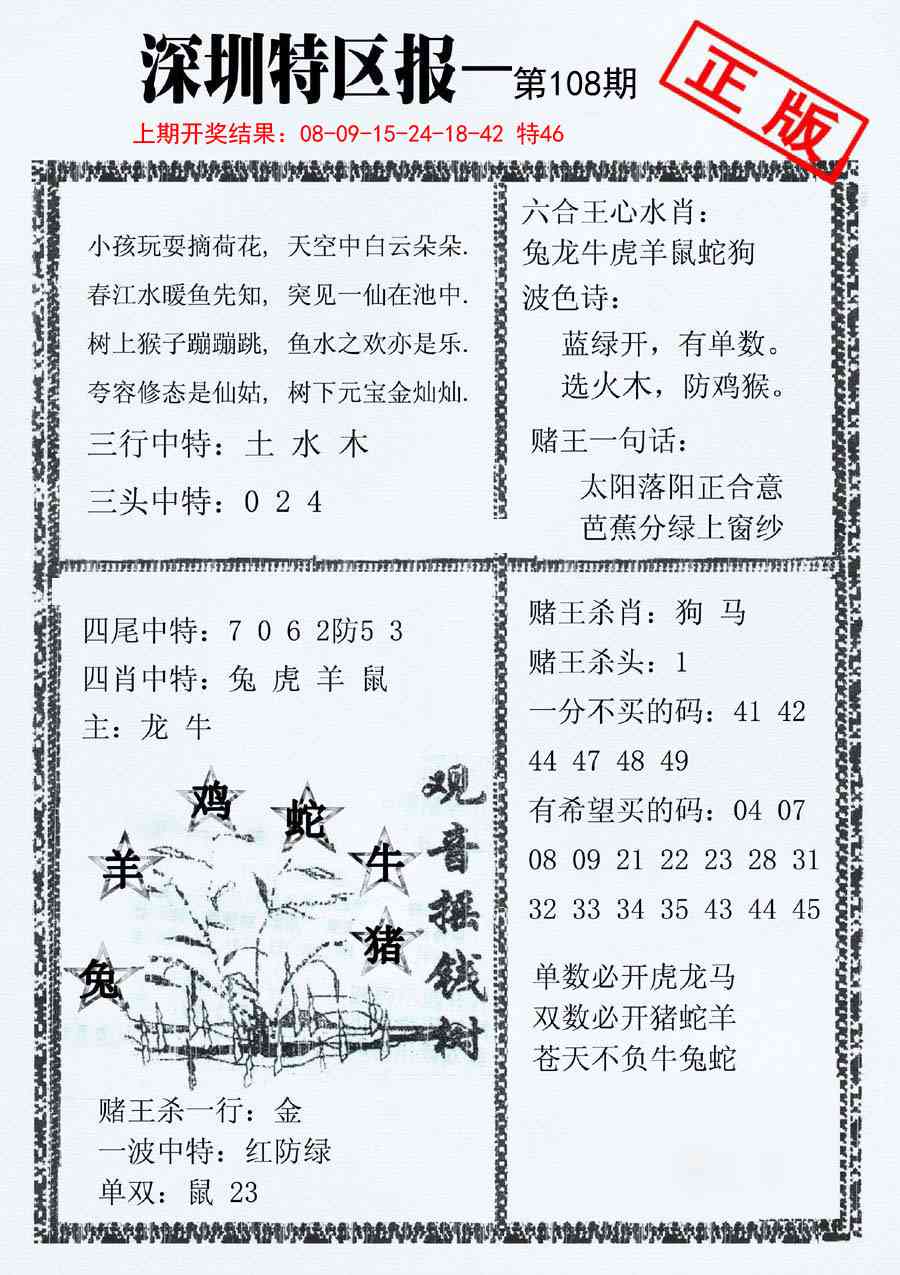 深圳特区报—第108期
正版
上期开奖结果：08-09-15-24-18-42 特46
小孩玩耍摘荷花，天空中白云朵朵.
春江水暖鱼先知，突见一仙在池中.
树上猴子蹦蹦跳，鱼水之欢亦是乐.
夸容修态是仙姑，树下元宝金灿灿.
三行中特：土 水 木
三头中特：0 2 4
六合王心水肖：
兔龙牛虎羊鼠蛇狗
波色诗：
蓝绿开，有单数。
选火木，防鸡猴。
赌王一句话：
太阳落阳正合意
芭蕉分绿上窗纱
四尾中特：7 0 6 2防5 3
四肖中特：兔 虎 羊 鼠
主：龙 牛
鸡
蛇
羊
牛
猪
兔
观音摇钱树
赌王杀一行：金
一波中特：红防绿
单双：鼠 23
赌王杀肖：狗 马
赌王杀头：1
一分不买的码：41 42
44 47 48 49
有希望买的码：04 07
08 09 21 22 23 28 31
32 33 34 35 43 44 45
单数必开虎龙马
双数必开猪蛇羊
苍天不负牛兔蛇